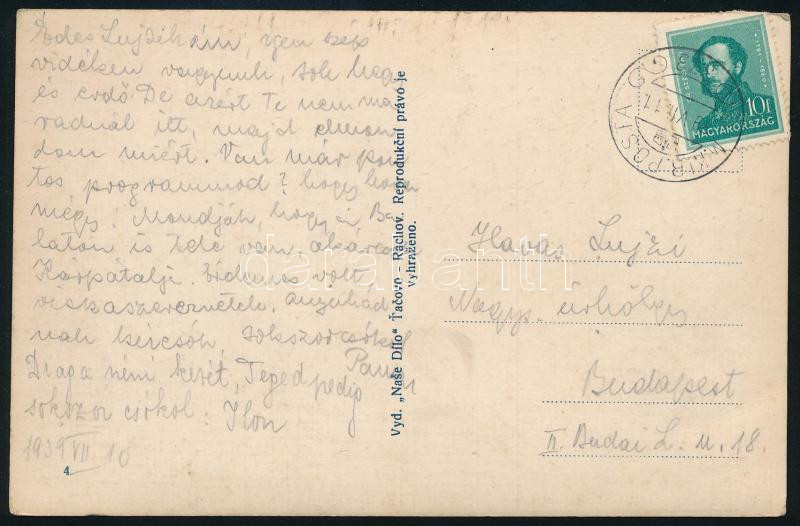 Édes Lujzikám, igen szép
vidéken vagyunk, sok hegy
és erdő. De azért Te nem ma
radnál itt, majd elmon
dom miért. Van már pon
tos programmod? hogy hova
mégy. Mondják, hogy a Ba
laton is tele van, akárcsak
Kárpátalja. Érdemes volt
visszaszerezni
nak kölcsön, sokszor csókol
Panni
Draga néni kezét, Teged pedig
sokszor csókol. Ilon
1939 VII 10
4
Vyd. „Naše Dílo" Ťačovo - Rachov. Reprodukční právo je
Vyhraženo.
10f
MAGYARORSZÁG
M. KIR. POSTA
Havas Lujzi
Nagys. úrhölgy
Budapest
II. Budai L. u. 18.
darabanth